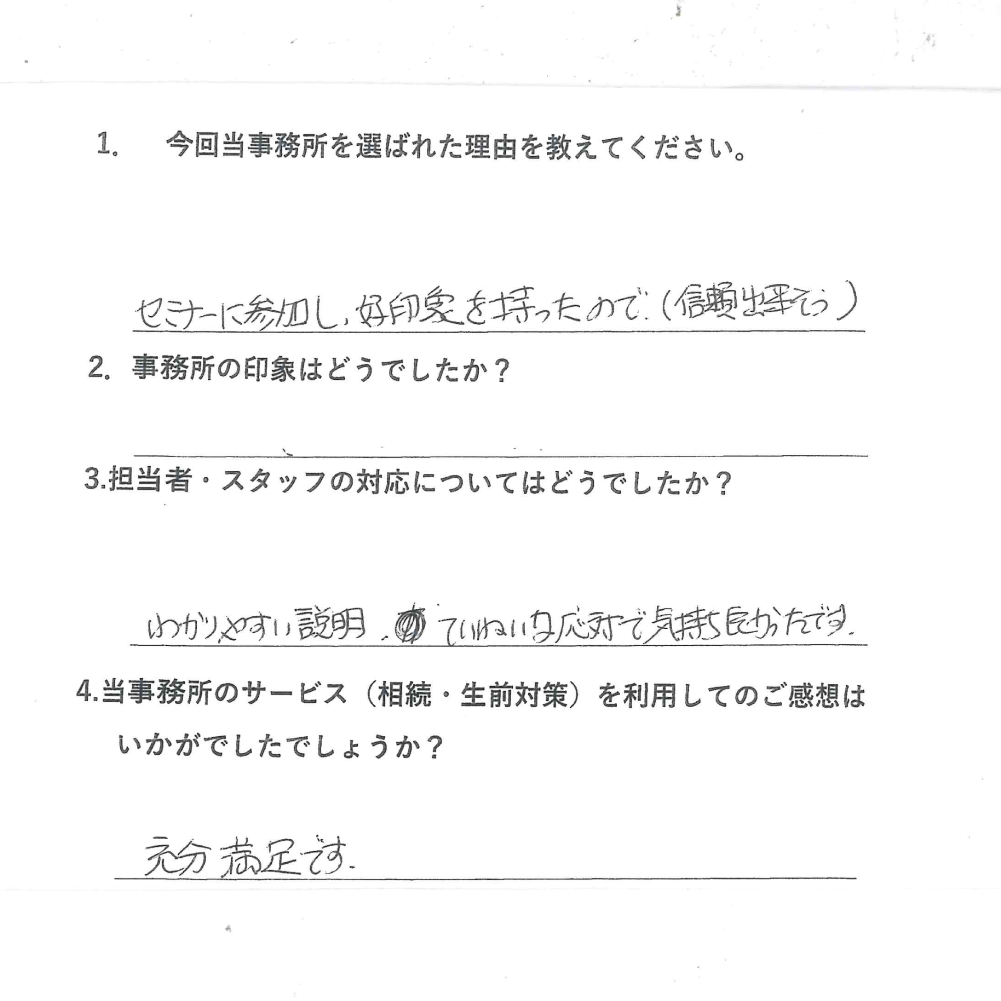 1. 今回当事務所を選ばれた理由を教えてください。
セミナーに参加し、好印象を持ったので.(信頼出来そう)
2. 事務所の印象はどうでしたか？
3.担当者・スタッフの対応についてはどうでしたか？
わかりやすい説明、ていねいな応対で気持ち良かったです.
4.当事務所のサービス（相続・生前対策）を利用してのご感想は
いかがでしたでしょうか？
充分満足です.